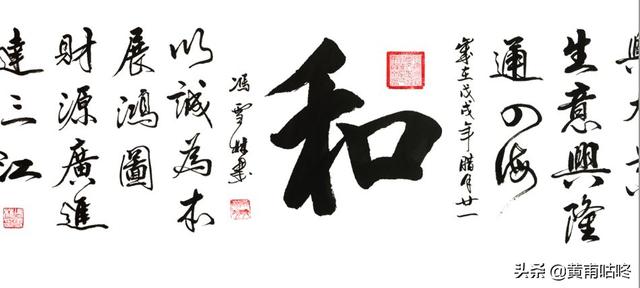 生意興隆
通四海
歲在戊戌年腊月廿一
和
馮雪
以誠為本
展鴻圖
財源廣進
達三江
头条 @黄甫咕咚